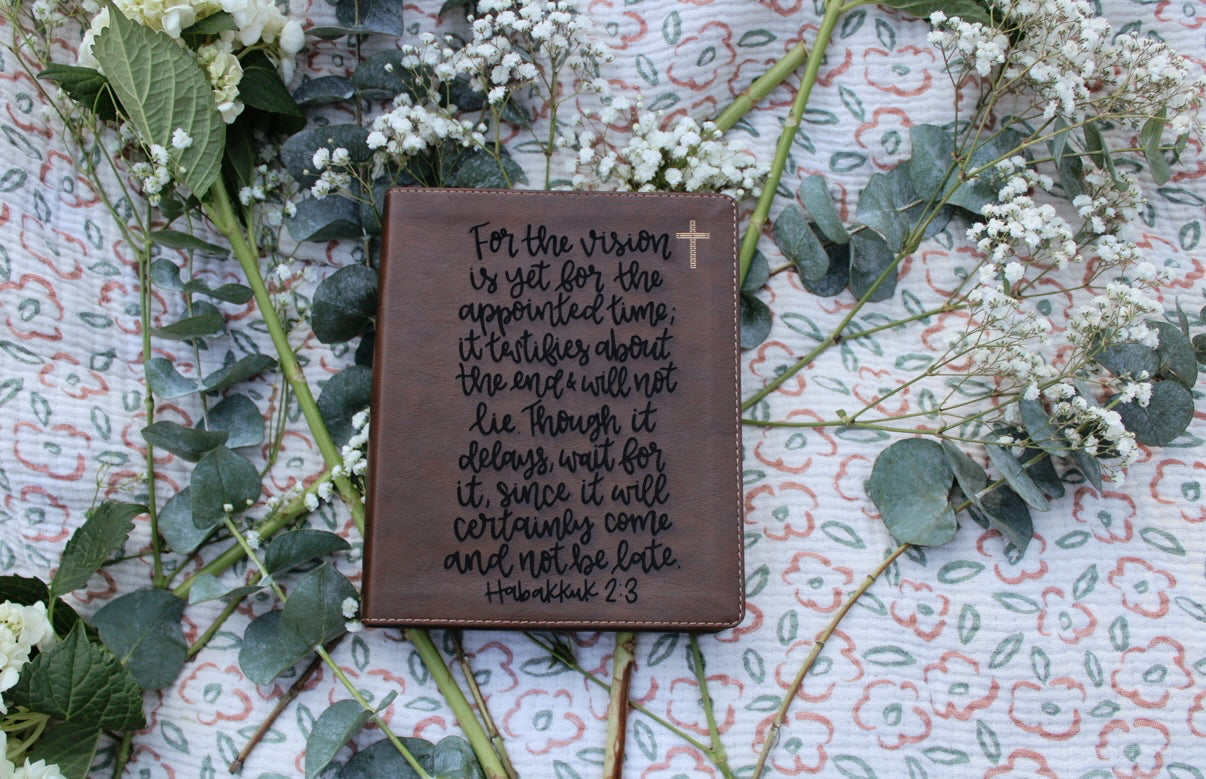 For the vision
is yet for the
appointed time;
it testifies about
the end & will not
lie. Though it
delays, wait for
it, since it will
certainly come
and not be late.
Habakkuk 2:3